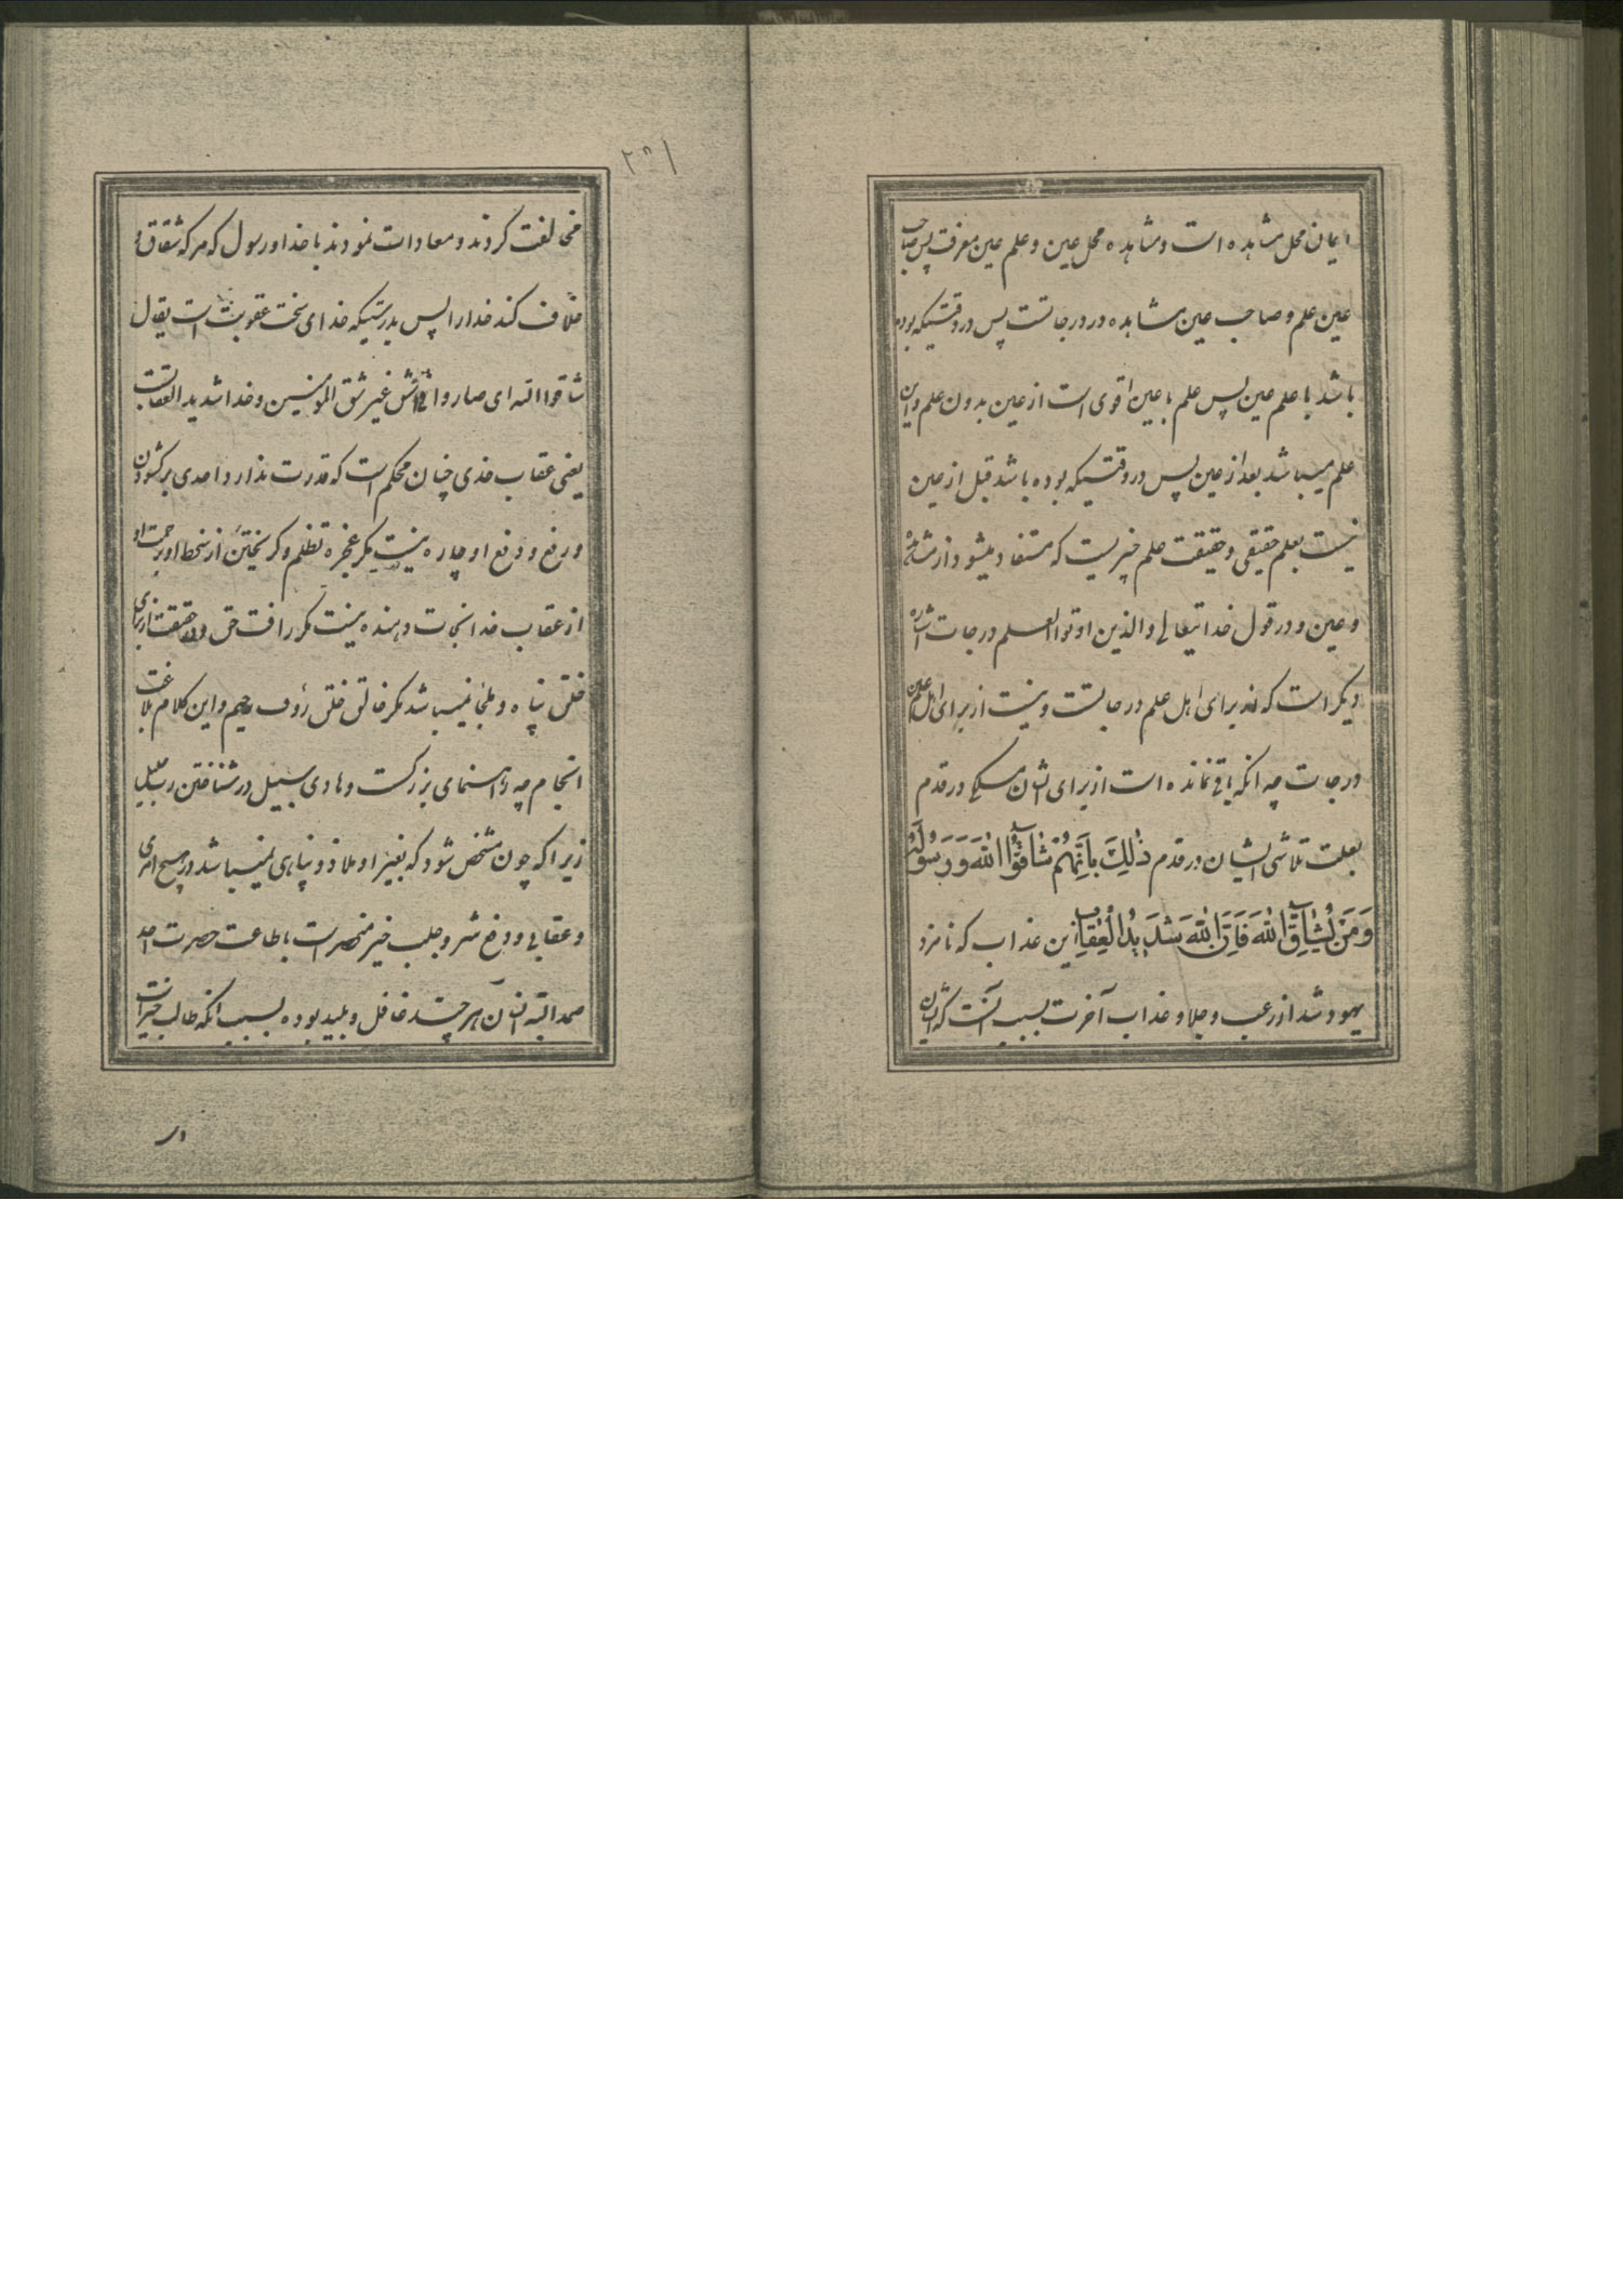 ایمان محل مشاهده است و مشاهده محل عین و علم عین معرفت پس صاحب
عین علم و صاحب عین مشاهده در درجاتست پس در وقتیکه بوده
باشد با علم عین پس علم با عین اقوی است از عین بدون علم و این
علم میباشد بعد از عین پس در وقتیکه بوده باشد قبل از عین
نیست بعلم حقیقی و حقیقت علم خبریست که مستفاد میشود از مشاهده
و عین و در قول خدایتعالی و الذین اوتوا العلم درجات اشاره
دیکر است که از برای اهل علم درجاتست و نیست از برای اهل عین
درجات چه انکه باقی نمانده است از برای ایشان مسلکی در قدم
بعلت تلاشی ایشان در قدم ذٰلِكَ بِاَنَّهُمْ شٰاقُّوا اللّٰهَ وَ رَسُولَهُ
وَ مَنْ يُشٰاقِّ اللّٰهَ فَاِنَّ اللّٰهَ شَدِيدُ الْعِقٰابِ این عذاب که نامزد
یهود شد از رعب و جلا و عذاب آخرت بسبب آنست که ایشان
۲۵۱
مخالفت کردند و معادات نمودند با خدا و رسول که هر که شقاق و
خلاف کند خدا را پس بدرستیکه خدای سخت عقوبت است یقال
شاقوا الله ای صاروا فی شق غیر شق المؤمنین و خدا شدید العقابست
یعنی عقاب خدی چنان محکم است که قدرت ندارد احدی بر کشودن
و رفع و دفع او چاره نیست مکر بعجزه تظلم و کریختن از سخط او برحمت او
از عقاب خدا نجات دهنده نیست مکر رافت حق و در حقیقت از برای
خلق پناه و ملجأ نمیباشد مکر خالق خلق رؤف رحیم و این کلام بلاغت
انجام چه راهنمای بزرکست و هادی سبیل در شناختن رب جلیل
زیرا که چون مشخص شود که بغیر او ملاذ و پناهی نمیباشد در هیچ امری
و عقابی و دفع شر و جلب خیر منحصر است باطاعت حضرت احد
صمد البته انسان هر چند غافل و بلید بوده بسبب انکه طالب خیرات